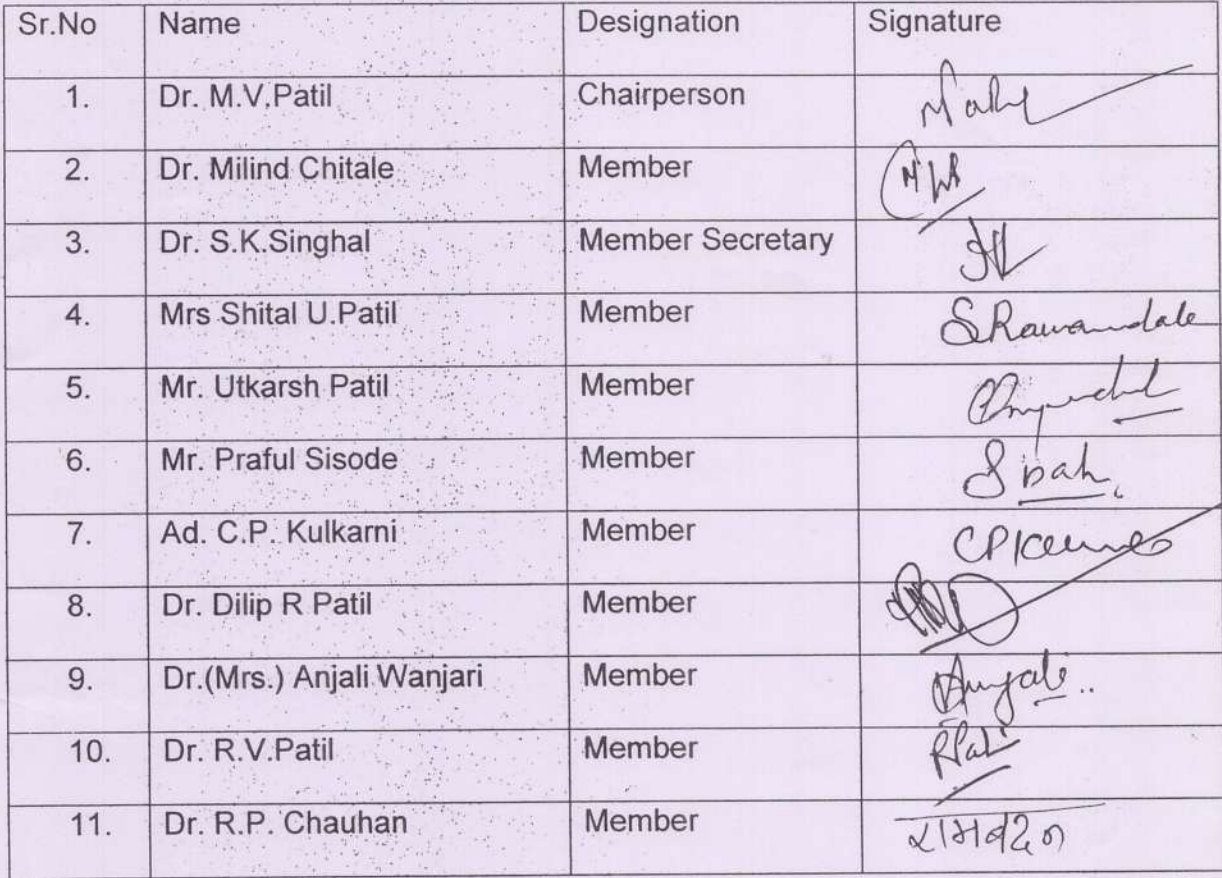 Sr.No Name Designation Signature
1. Dr. M.V,Patil Chairperson
2. Dr. Milind Chitale Member
3. Dr. S.K.Singhal Member Secretary
4. Mrs Shital U.Patil Member SRawandale
5. Mr. Utkarsh Patil Member
6. Mr. Praful Sisode Member
7. Ad. C.P. Kulkarni Member
8. Dr. Dilip R Patil Member
9. Dr.(Mrs.) Anjali Wanjari Member Anjali
10. Dr. R.V.Patil Member
11. Dr. R.P. Chauhan Member